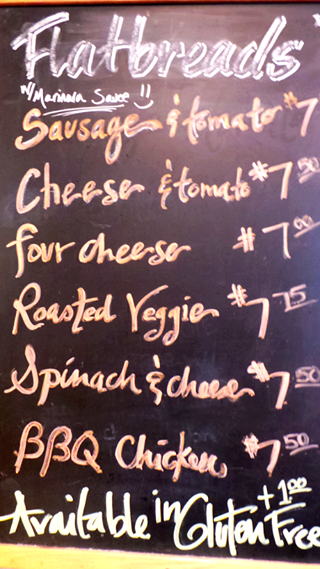 Flatbreads
w/ Marinara Sauce !!
Sausage & tomato $7
Cheese & tomato $7.50
four cheese $7.00
Roasted Veggie $7.75
Spinach & cheese $7.50
BBQ Chicken $7.50
Available in Gluten Free +1.00